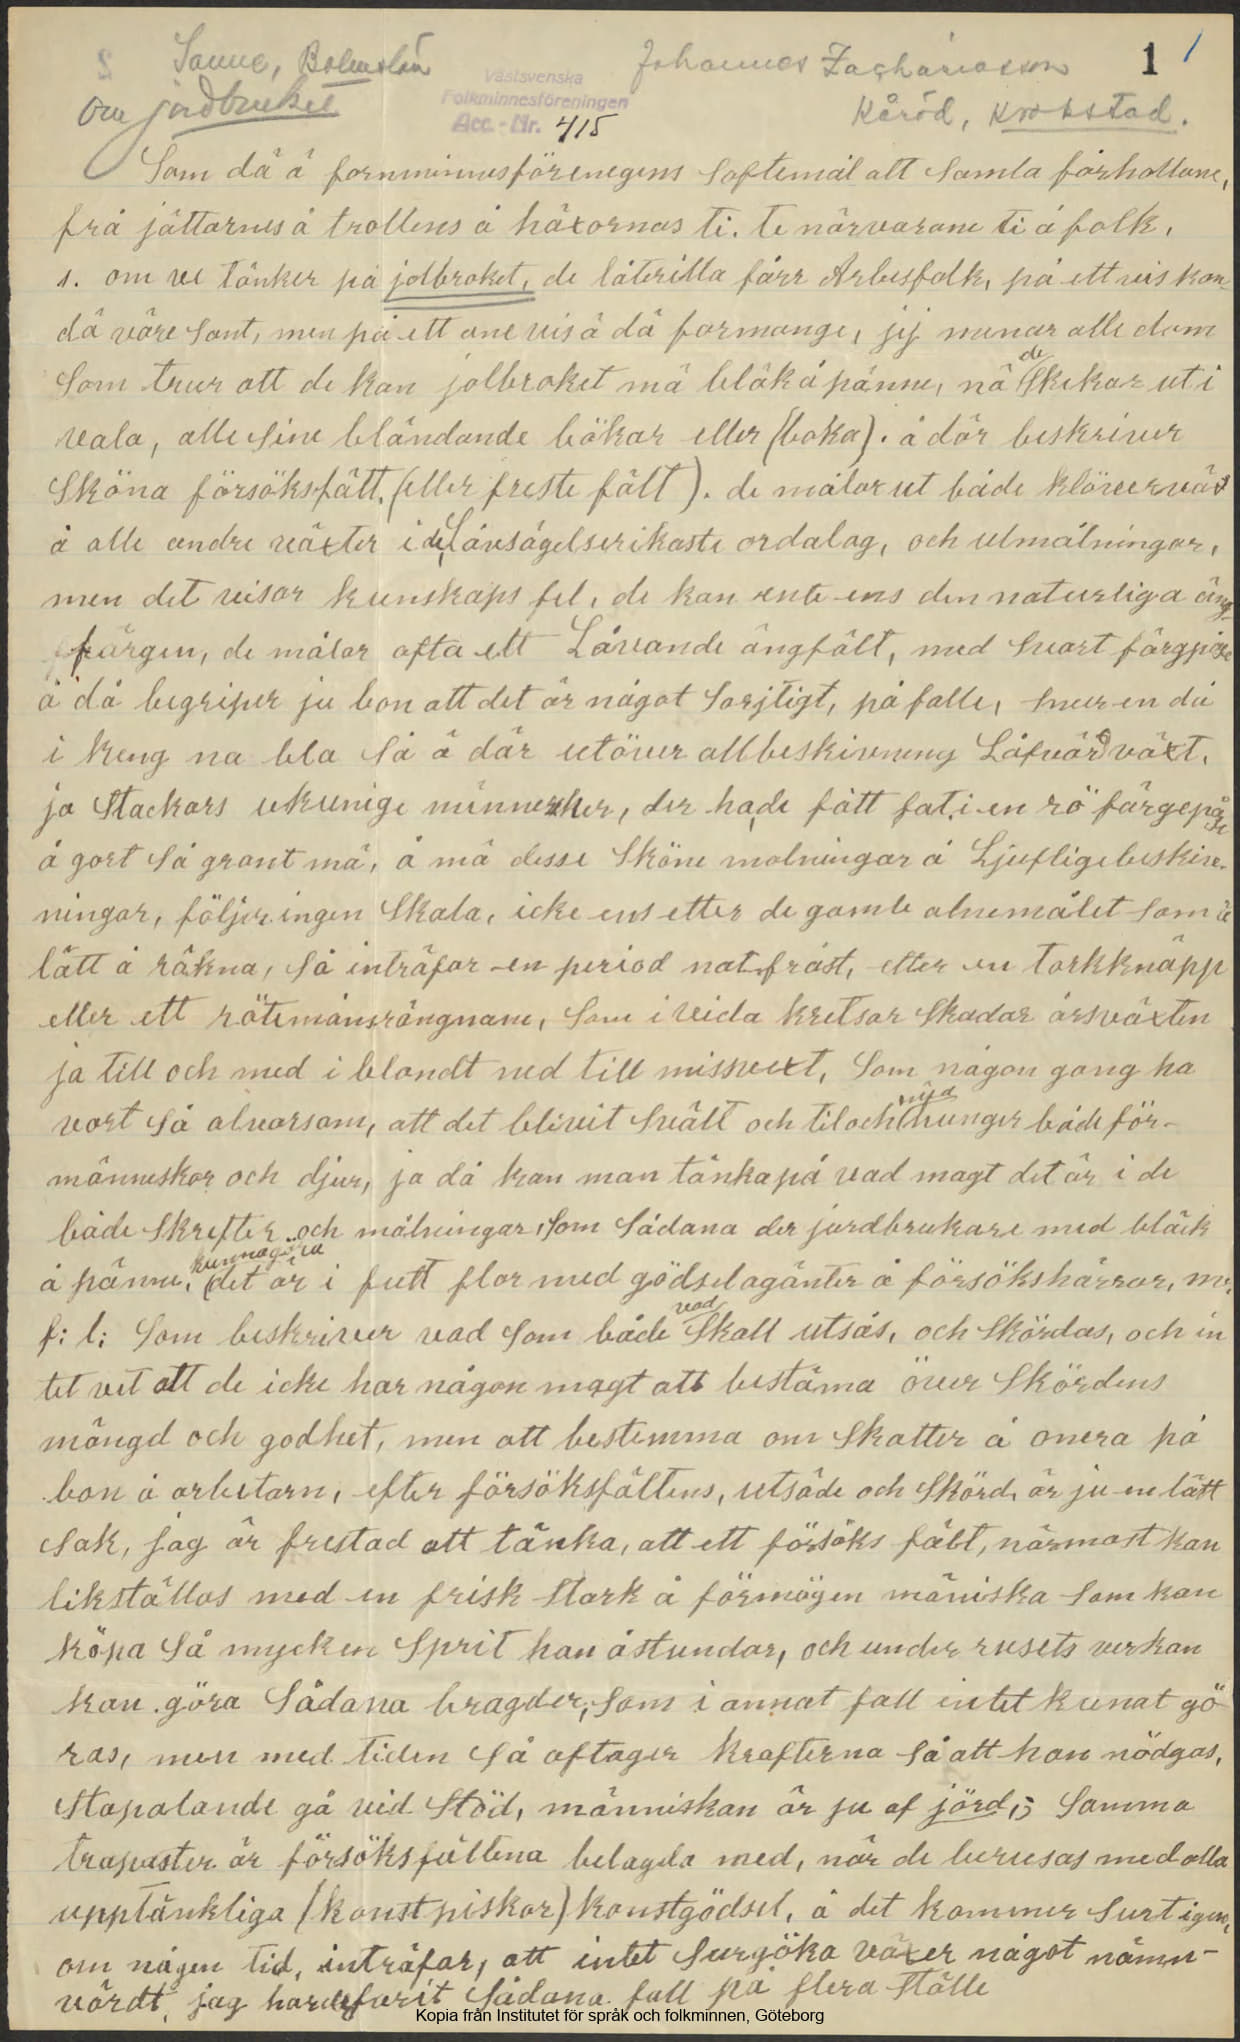 S Sanne, Bohuslän
Johannes Zachariasson
1 1
Västsvenska
Folkminnesföreningen
Acc.-Nr. 415
Om jordbruket
Kåröd, Krokstad.
Som dä ä fornminnesförenegens Softemål att Samla förhollane,
frå jättarnes å trollens å häxornas ti. te närvarane ti å folk,
1. om ve tänker på jolbroket, de låterilla fårr Arbesfolk, på ett vis kan
dä väre Sant, men på ett ane vis ä dä formange, jej menar alle dom
Som trur att de kan jolbroket mä bläk å pänne, nä de Skikar ut i
vala, alle Sine bländande bökar eller (boka). å där beskriver
Sköna försöksfätt. (eller freste fält). de målar ut både klöverväx
å alle andre växter i de Låvsägelserikaste ordalag, och utmålningar,
men det visar kunskaps fel, de kan ente ens den naturliga äng-
färgen, de målar ofta ett Låvande ängfält, med Svart färgpåse
å då begriper ju bon att det är något Sorjligt, på falle, Snur en då
i kring na bla Så ä där utöver all beskivneng Låfvärd växt,
ja Stackars ukunige männesker, der hade fått fat i en rö färgepåse
å gort Så grant mä, å mä desse Sköne molningar å Ljufligebeskriv-
ningar, följer ingen Skala, icke ens etter de gamle alnemålet Som ä
lätt å räkna, Så inträfar en period natfråst, etter en torkknäpp
eller ett rötemånsrängnane, Som i vida kretsar Skadar årsväxten
ja till och med i blandt ned till missvext, Som någon gong ha
vart Så alvarsam, att det blivit Svält och til och med hunger både för-
människor och djur, ja då kan man tänka på vad magt det är i de
både Skrefter och målningar, Som Sådana der jordbrukare med bläck
å pänna, kunna göra det är i futt flor med gödselagänter å försökshärrar, m.
f: l: Som beskriver vad Som både vad Skall utsås, och Skördas, och in
tet vet att de icke har någon magt att bestäma över Skördens
mängd och godhet, men att bestemma om Skatter å onera på
bon å arbetarn, efter försöksfältens, utsäde och Skörd, är ju en lätt
Sak, jag är frestad att tänka, att ett försöks fält, närmast kan
likställas med en frisk Stark å förmögen mäniska Som kan
köpa Så mycken Sprit han åstundar, och under rusets verkan
kan göra Sådana bragder, Som i annat fall intet kunat gö
ras, men med tiden Så aftager krafterna Så att han nödgas,
Stapalande gå vid Stöd, människan är ju af jörd, Samma
trapaster är försöksfältena belagda med, när de berusas med alla
upptänkliga (konstpiskar) konstgödsel, å det kommer Surt igen,
om någen tid, inträfar, att intet Surgöka växer något nämn-
värdt, jag har erfarit Sådana fall på flera Ställe
Kopia från Institutet för språk och folkminnen, Göteborg